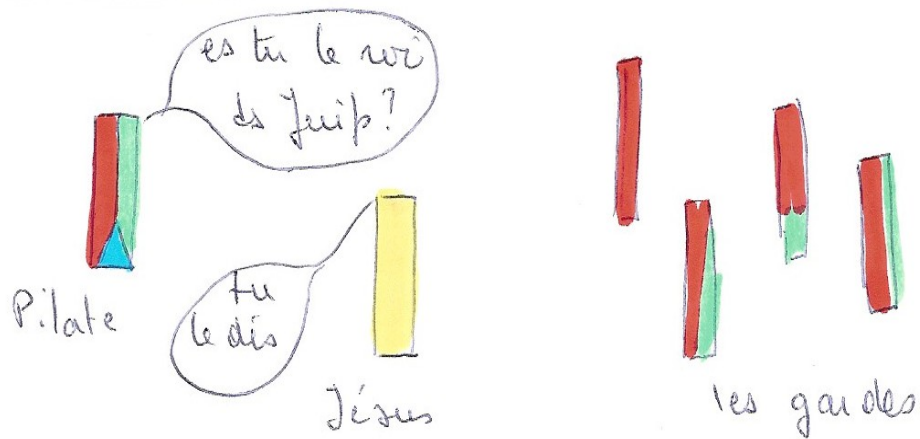 es tu le roi
ds Juifs?
Pilate
tu
le dis
Jésus
les gardes